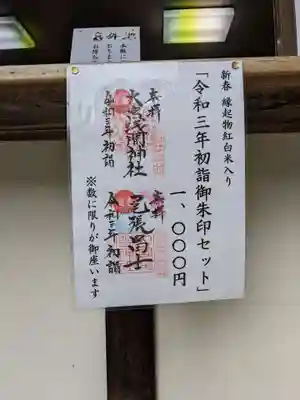 新春 縁起物紅白米入り
「令和三年初詣御朱印セット」
一、〇〇〇円
奉拝
大宮浅間神社
令和三年初詣
奉拝
尾張冨士
令和三年初詣
※数に限りが御座います